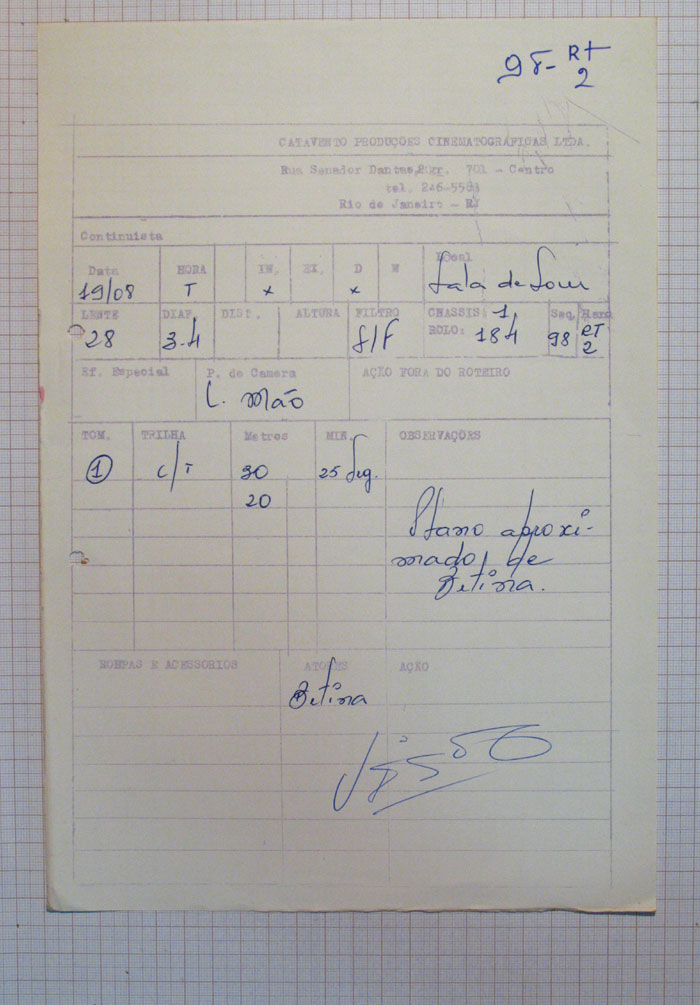 98- RT
2
CATAVENTO PRODUÇOES CINEMATOGRAFICAS LTDA.
Rua Senador Dantas, gr. 701 - Centro
tel. 246-5583
Rio de Janeiro - RJ
Continuista
Data HORA IN. EX. D N Local
19/08 T x x Sala de Som
LENTE DIAF. DIST. ALTURA FILTRO CHASSIS: 1 Seq.
28 3.4 f/F ROLO: 184 98 RT
2
Ef. Especial P. de Camera AÇÃO FORA DO ROTEIRO
C. mão
TOM. TRILHA Metros MIN. OBSERVAÇÕES
1 c/T 30 25 Seg.
20
Plano aproxi-
mado de
Betina.
ROUPAS E ACESSORIOS ATORES AÇÃO
Betina